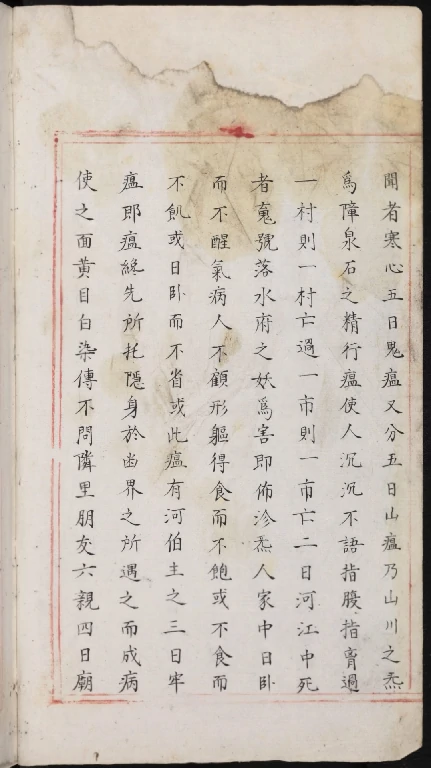 聞者寒心五曰鬼瘟又分五曰山瘟乃山川之炁
爲障泉石之精行瘟使人沉沉不語指腹指膏過
一村則一村亡過一市則一市亡二曰河江中死
者䰟號落水府之妖爲害即佈沴炁人家中日卧
而不醒氣病人不顧形軀得食而不飽或不食而
不飢或日卧而不省或此瘟有河伯主之三曰牢
瘟即瘟纔先所托隱身於幽界之所遇之而成病
使之面黃目白染傳不問隣里朋友六親四曰廟